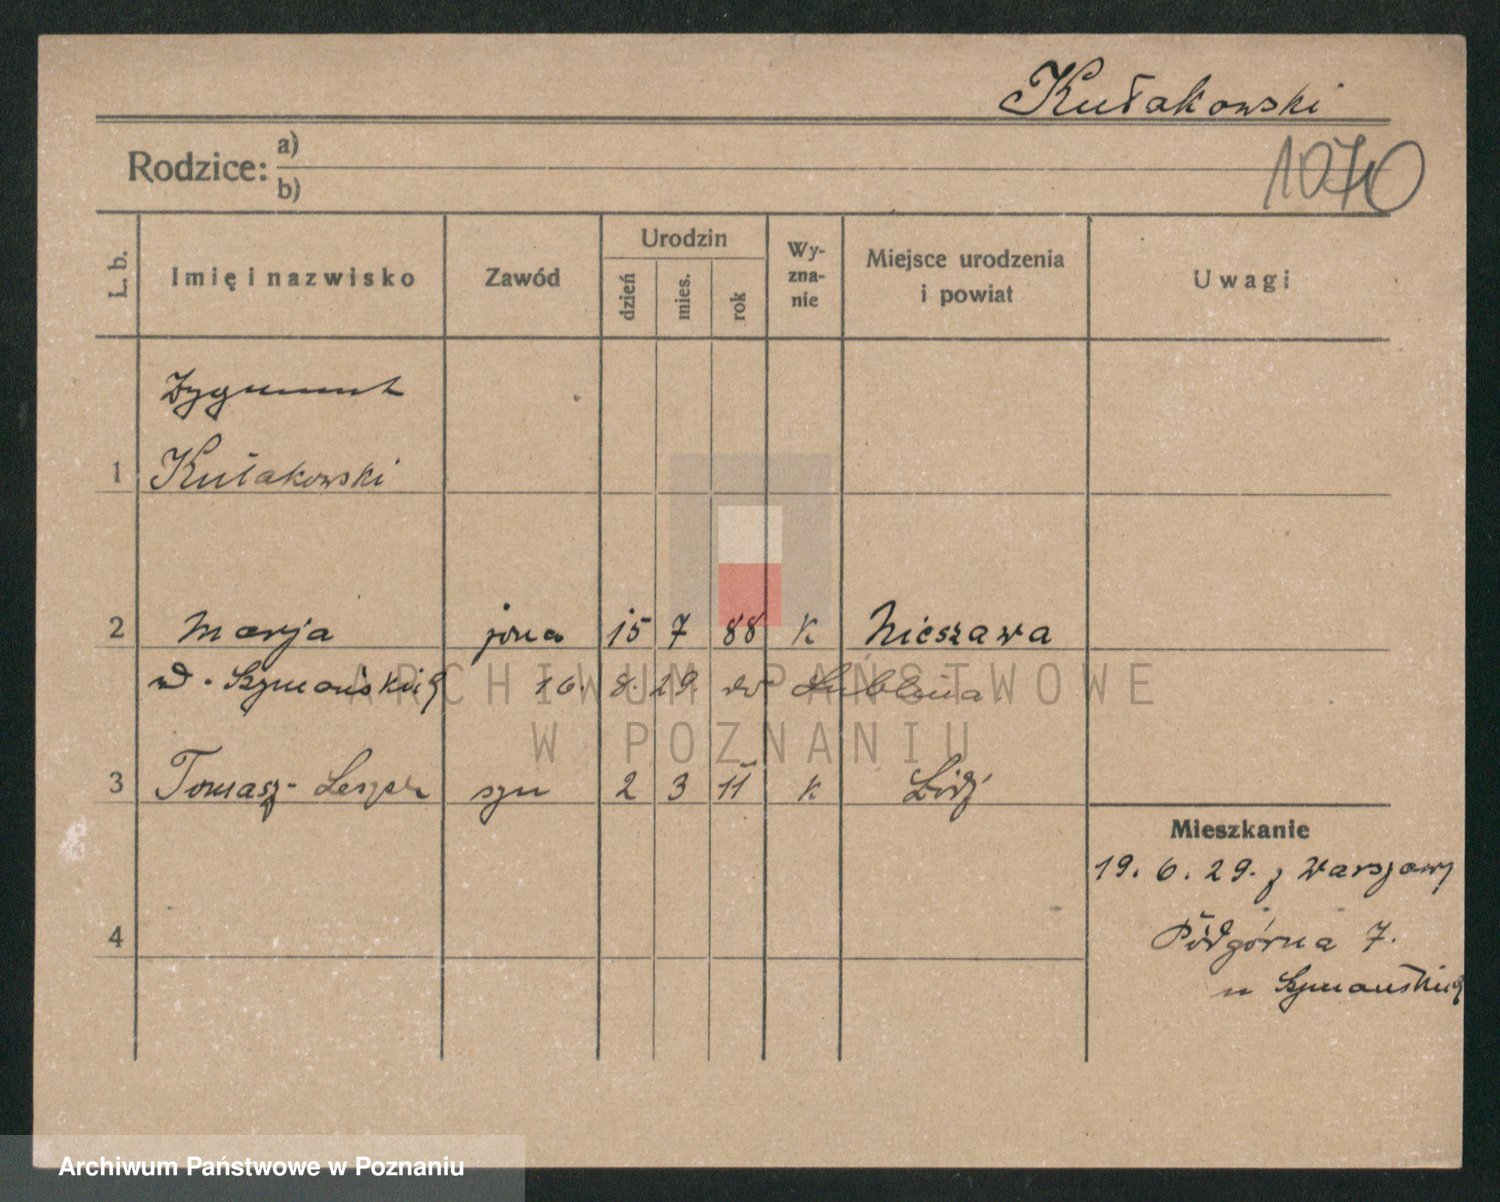 Kułakowski
1070
Rodzice: a)
b)
L. b.
Imię i nazwisko
Zawód
Urodzin
dzień
mies.
rok
Wy-
zna-
nie
Miejsce urodzenia
i powiat
Uwagi
Zygmunt
1 Kułakowski
2 Marja żona 15 7 88 k Nieszawa
d. Szymańskich 16. 8. 29 do Lublina
3 Tomasz-Leszek syn 2 3 11 k Łódź
4
Mieszkanie
19. 6. 29. z Warszawy
Podgórna 7.
u Szymańskich
ARCHIWUM PAŃSTWOWE
W POZNANIU
Archiwum Państwowe w Poznaniu